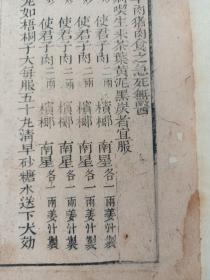 牛肉猪肉食之急死無醫
喫生米茶葉黄泥黑炭者宜服
使君子肉二兩 檳榔 南星各一兩姜汁製
使君子肉二兩 檳榔 南星各一兩姜汁製
使君子肉二兩 檳榔 南星各一兩姜汁製
使君子肉二兩 檳榔 南星各一兩姜汁製
丸如梧桐子大每服五十丸清早砂糖水送下大効